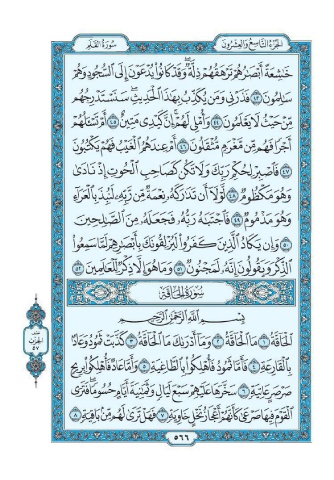 الجزء التاسع والعشرون
سورة القلم
خَٰشِعَةً أَبْصَٰرُهُمْ تَرْهَقُهُمْ ذِلَّةٌ ۖ وَقَدْ كَانُوا۟ يُدْعَوْنَ إِلَى ٱلسُّجُودِ وَهُمْ
سَٰلِمُونَ ٤٣ فَذَرْنِى وَمَن يُكَذِّبُ بِهَٰذَا ٱلْحَدِيثِ ۖ سَنَسْتَدْرِجُهُم
مِّنْ حَيْثُ لَا يَعْلَمُونَ ٤٤ وَأُمْلِى لَهُمْ ۚ إِنَّ كَيْدِى مَتِينٌ ٤٥ أَمْ تَسْـَٔلُهُمْ
أَجْرًا فَهُم مِّن مَّغْرَمٍ مُّثْقَلُونَ ٤٦ أَمْ عِندَهُمُ ٱلْغَيْبُ فَهُمْ يَكْتُبُونَ
٤٧ فَٱصْبِرْ لِحُكْمِ رَبِّكَ وَلَا تَكُن كَصَاحِبِ ٱلْحُوتِ إِذْ نَادَىٰ
وَهُوَ مَكْظُومٌ ٤٨ لَّوْلَآ أَن تَدَٰرَكَهُۥ نِعْمَةٌ مِّن رَّبِّهِۦ لَنُبِذَ بِٱلْعَرَآءِ
وَهُوَ مَذْمُومٌ ٤٩ فَٱجْتَبَٰهُ رَبُّهُۥ فَجَعَلَهُۥ مِنَ ٱلصَّٰلِحِينَ
٥٠ وَإِن يَكَادُ ٱلَّذِينَ كَفَرُوا۟ لَيُزْلِقُونَكَ بِأَبْصَٰرِهِمْ لَمَّا سَمِعُوا۟
ٱلذِّكْرَ وَيَقُولُونَ إِنَّهُۥ لَمَجْنُونٌ ٥١ وَمَا هُوَ إِلَّا ذِكْرٌ لِّلْعَٰلَمِينَ ٥٢
سورة الحاقة
بِسْمِ ٱللَّهِ ٱلرَّحْمَٰنِ ٱلرَّحِيمِ
ٱلْحَآقَّةُ ١ مَا ٱلْحَآقَّةُ ٢ وَمَآ أَدْرَىٰكَ مَا ٱلْحَآقَّةُ ٣ كَذَّبَتْ ثَمُودُ وَعَادٌۢ
بِٱلْقَارِعَةِ ٤ فَأَمَّا ثَمُودُ فَأُهْلِكُوا۟ بِٱلطَّاغِيَةِ ٥ وَأَمَّا عَادٌ فَأُهْلِكُوا۟ بِرِيحٍ
صَرْصَرٍ عَاتِيَةٍ ٦ سَخَّرَهَا عَلَيْهِمْ سَبْعَ لَيَالٍ وَثَمَٰنِيَةَ أَيَّامٍ حُسُومًا فَتَرَى
ٱلْقَوْمَ فِيهَا صَرْعَىٰ كَأَنَّهُمْ أَعْجَازُ نَخْلٍ خَاوِيَةٍ ٧ فَهَلْ تَرَىٰ لَهُم مِّنۢ بَاقِيَةٍ ٨
٥٦٦
الحزب
٥٧